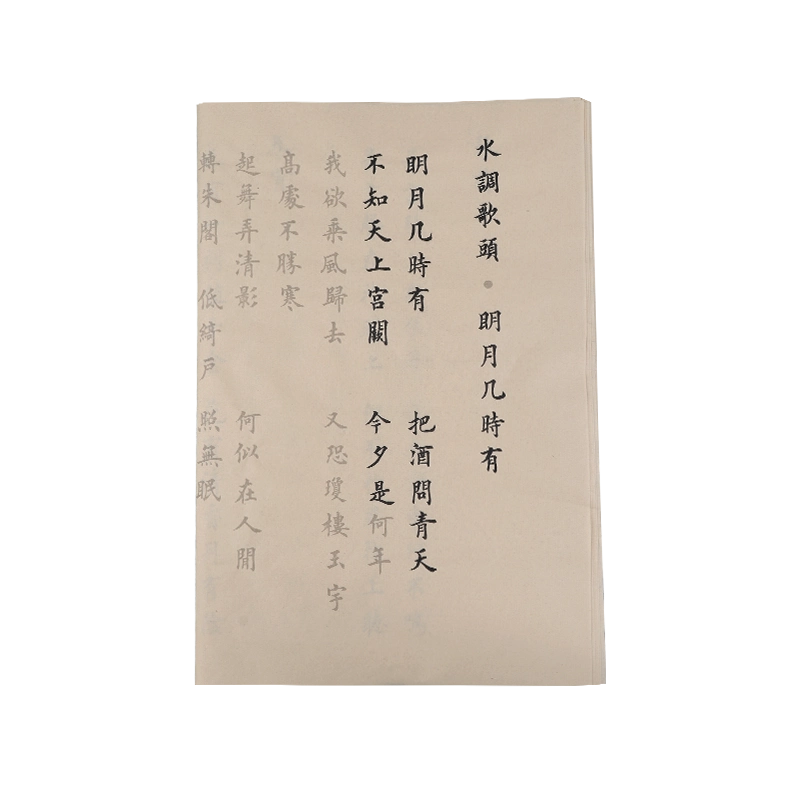 水調歌頭·明月几時有
明月几時有 把酒問青天
不知天上宮闕 今夕是何年
我欲乘風歸去 又恐瓊樓玉宇
高處不勝寒
起舞弄清影 何似在人間
轉朱閣 低綺戶 照無眠